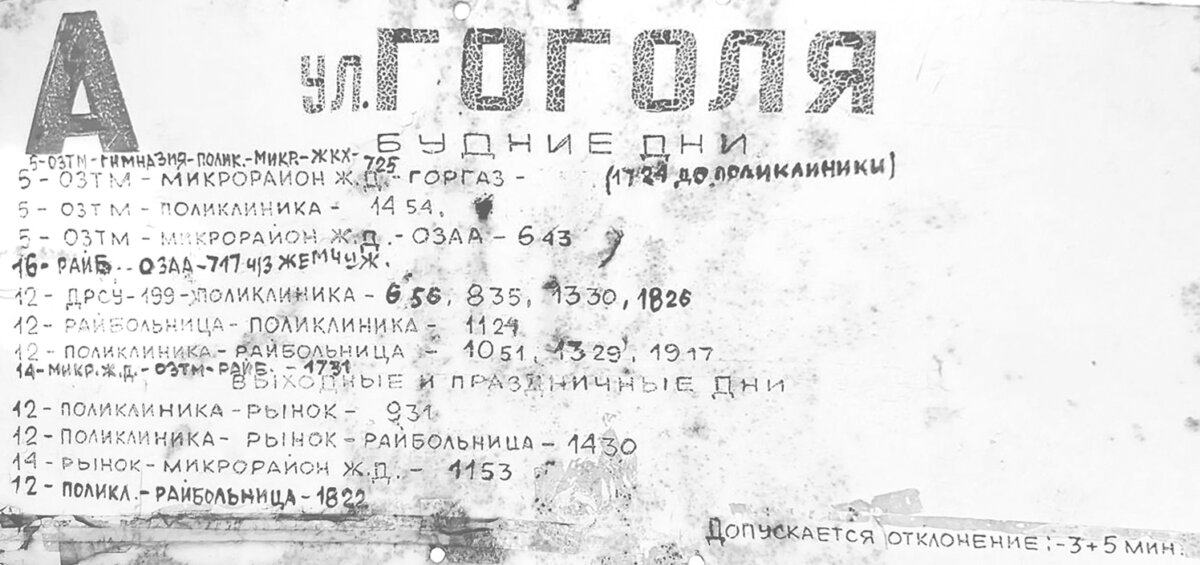 А
ул. ГОГОЛЯ
БУДНИЕ ДНИ
5-ОЗТМ-ГИМНАЗИЯ-ПОЛИК.-МИКР.-ЖКХ-725
5-ОЗТМ-МИКРОРАЙОН Ж.Д.-ГОРГАЗ- (1724 ДО ПОЛИКЛИНИКИ)
5-ОЗТМ-ПОЛИКЛИНИКА-1454,
5-ОЗТМ-МИКРОРАЙОН Ж.Д.-ОЗАА-643
16-РАЙБ.-ОЗАА-717 Ч/З ЖЕМЧУЖ.
12-ДРСУ-199-ПОЛИКЛИНИКА-656, 835, 1330, 1826
12-РАЙБОЛЬНИЦА-ПОЛИКЛИНИКА-1124
12-ПОЛИКЛИНИКА-РАЙБОЛЬНИЦА-1051, 1329, 1917
14-МИКР.Ж.Д.-ОЗТМ-РАЙБ.-1731
ВЫХОДНЫЕ И ПРАЗДНИЧНЫЕ ДНИ
12-ПОЛИКЛИНИКА-РЫНОК-931
12-ПОЛИКЛИНИКА-РЫНОК-РАЙБОЛЬНИЦА-1430
14-РЫНОК-МИКРОРАЙОН Ж.Д.-1153
12-ПОЛИКЛ.-РАЙБОЛЬНИЦА-1822
ДОПУСКАЕТСЯ ОТКЛОНЕНИЕ:-3+5 МИН.